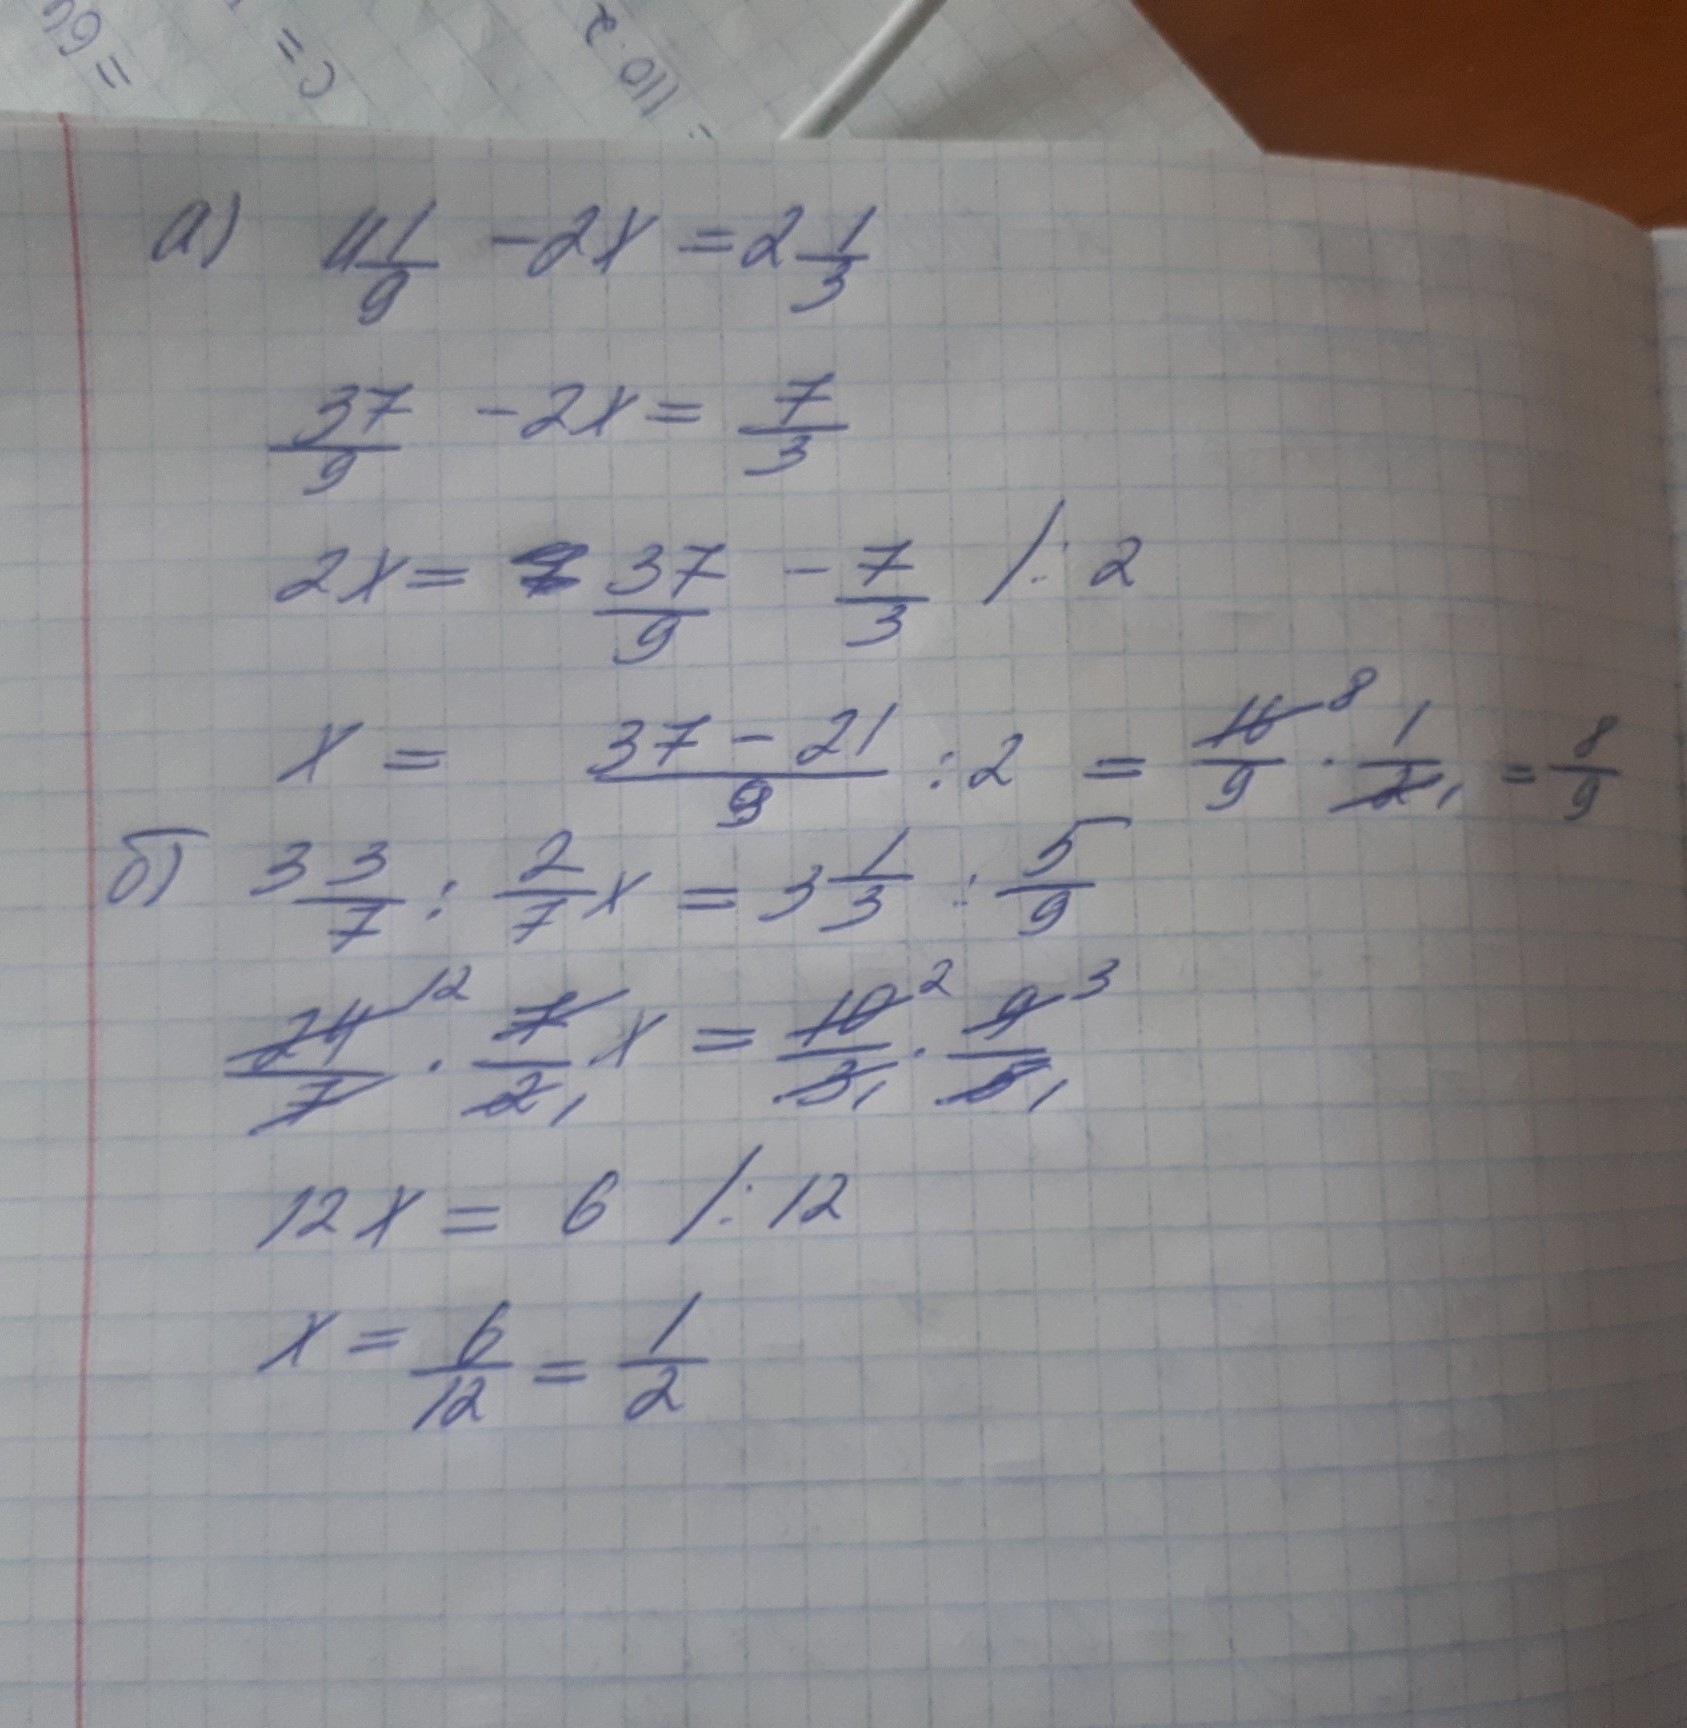 = 64
c =
110.2
а) 4 1/9 - 2x = 2 1/3
37/9 - 2x = 7/3
2x = 37/9 - 7/3 /: 2
x = (37 - 21)/9 : 2 = 16/9 8 · 1/2 1 = 8/9
б) 3 3/7 : 2/7 x = 3 1/3 : 5/9
24/7 12 · 7/2 1 x = 10/3 1 2 · 9/5 1 3
12x = 6 /: 12
x = 6/12 = 1/2